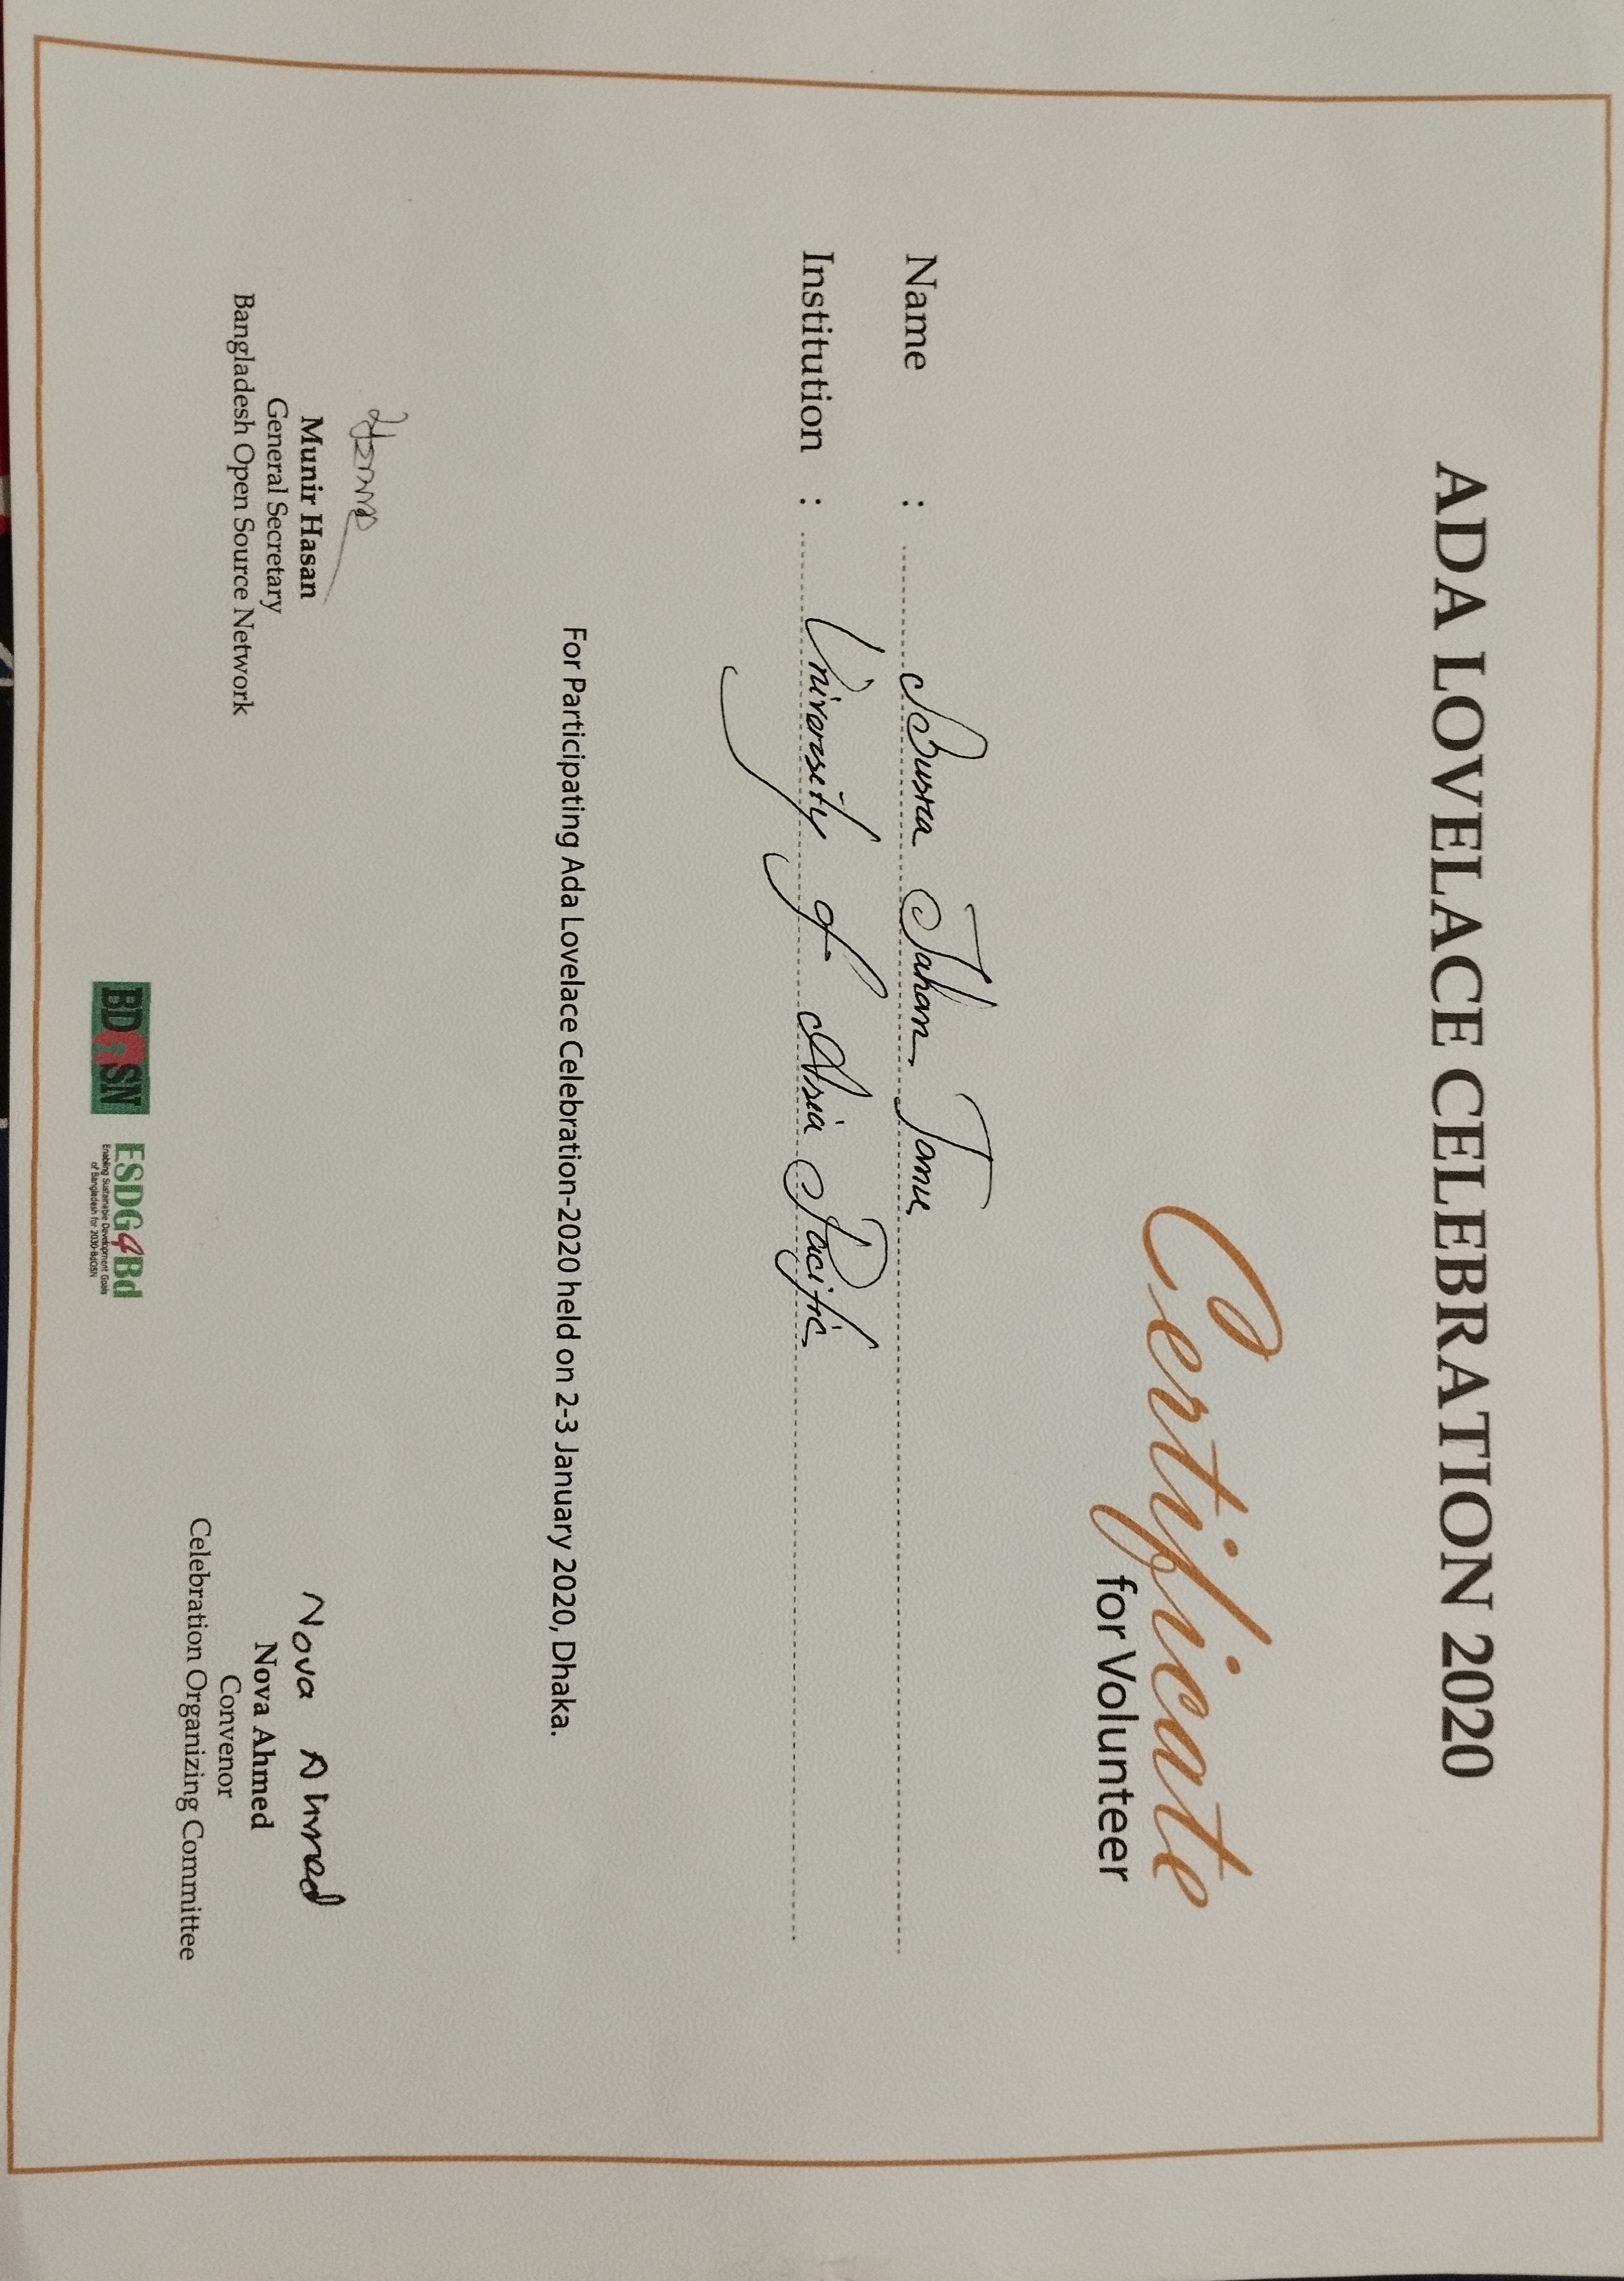 ADA LOVELACE CELEBRATION 2020
Certificate
for Volunteer
Name : Busra Jahan Tanu
Institution : University of Asia Pacific
For Participating Ada Lovelace Celebration-2020 held on 2-3 January 2020, Dhaka.
Munir Hasan
General Secretary
Bangladesh Open Source Network
Nova Ahmed
Nova Ahmed
Convenor
Celebration Organizing Committee
BDOSN
ESDG4Bd
Enabling Sustainable Development Goals
of Bangladesh for 2030-BdOSN